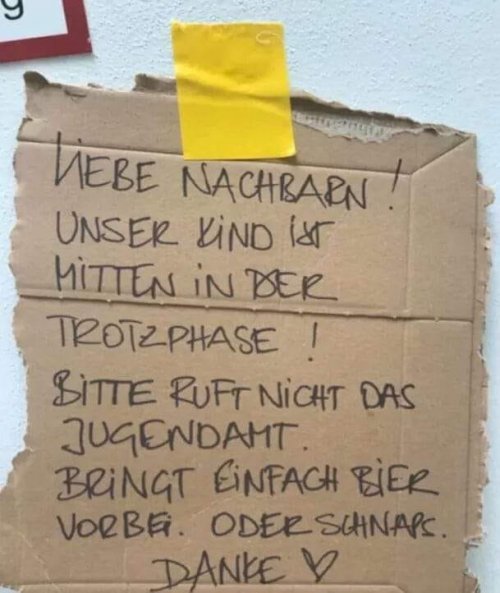 g
LIEBE NACHBARN!
UNSER KIND IST
MITTEN IN DER
TROTZPHASE!
BITTE RUFT NICHT DAS
JUGENDAMT.
BRINGT EINFACH BIER
VORBEI. ODER SCHNAPS.
DANKE ♡